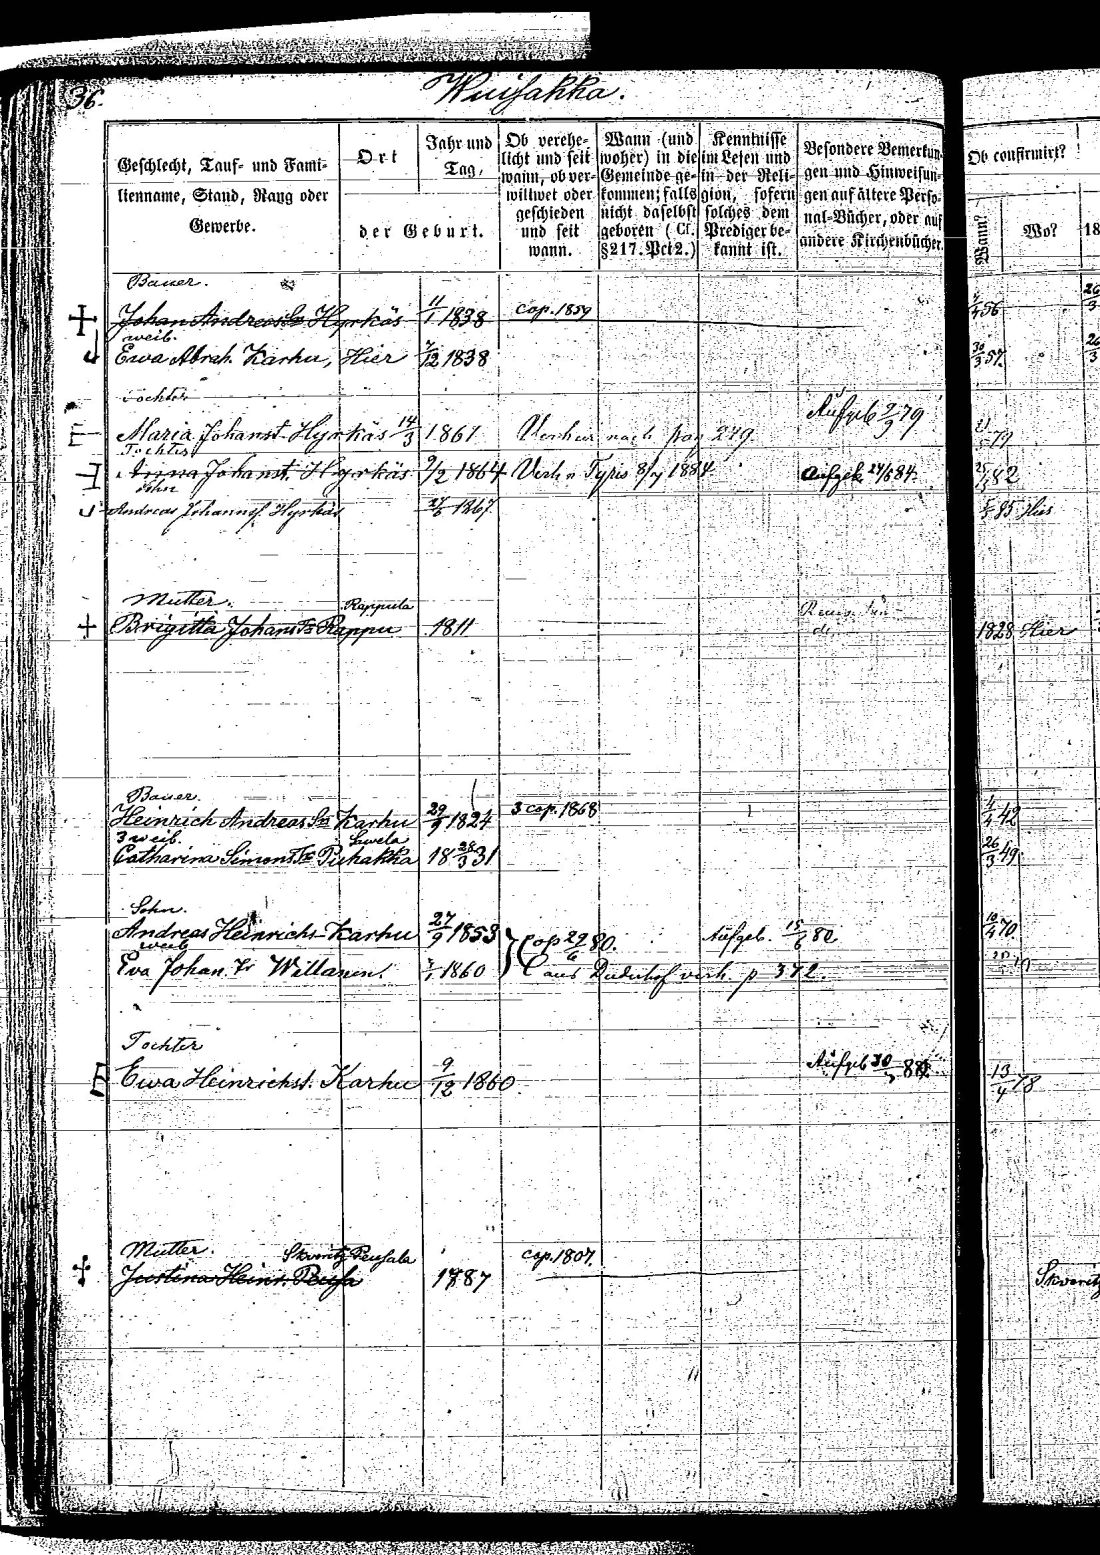 36.
Wuijakka.
Geschlecht, Tauf- und Fami-
lienname, Stand, Rang oder
Gewerbe.
Ort
der Geburt.
Jahr und
Tag,
Ob verehe-
licht und seit
wann, ob ver-
willwet oder
geschieden
und seit
wann.
Wann (und
woher) in die
Gemeinde ge-
kommen; falls
nicht daselbst
geboren (Cf.
§217. Pct2.)
Kenntnisse
im Lesen und
in der Reli-
gion, sofern
solches dem
Prediger be-
kannt ist.
Besondere Bemerkun-
gen und Hinweisun-
gen auf ältere Perso-
nal-Bücher, oder auf
andere Kirchenbücher.
Ob confirmirt?
Wann?
Wo?
18
Bauer.
Johan Andreas Sn Hyrkäs 11/1 1838 cop. 1859 56 26/3
weib.
Ewa Abrah. Karhu, Hier 1838 30/3 57. 26/3
Tochter
Aufgeb 2/9 79
Maria Johanst. Hyrkäs 14/3 1861 Verheir nach pag 279.
Tochter
Anna Johanst. Hyrkäs 9/2 1864 Verh n Typis 8/7 1884 Aufgeb. 24/6 84. 82
Sohn
Andreas Johannes Hyrkäs 1867. 85 Hier
Mutter. Rappula
Brigitta Johans Tr Rappu 1811 1828 Hier
Bauer.
Heinrich Andreas Sn Karhu 29/9 1824 3 cop. 1868 4/4 42
3 weib. Suwela
Catharina Simons Tr Puhakka 18 28/3 31 26/3 49.
Sohn.
Andreas Heinrichs Karhu 27/9 1853 Cop 29/6 80. Aufgeb. 15/6 80 10/4 70.
weib
Eva Johan. Tr Willanen 1860 aus Duderhof verh. p 372.
Tochter
Ewa Heinrichst. Karhu 9/12 1860 Aufgeb 30/ 13/4 78
Mutter. Skworitz Peusala cop. 1807.
Justina Heinr. Peusa 1887 Skworitz